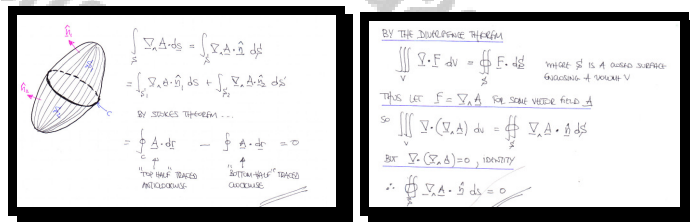 n̂₁
n̂₂
S₁
S₂
C
∫_S ∇∧A·dS = ∫_S ∇∧A·n̂ dS
= ∫_S₁ ∇∧A·n̂₁ dS + ∫_S₂ ∇∧A·n̂₂ dS
BY STOKES THEOREM ...
= ∮_C A·dr − ∮_C A·dr = 0
"TOP HALF" TRACED
ANTICLOCKWISE
"BOTTOM-HALF" TRACED
CLOCKWISE
BY THE DIVERGENCE THEOREM
∭_V ∇·F dV = ∯_S F·dS WHERE S IS A CLOSED SURFACE
ENCLOSING A VOLUME V
THUS LET F = ∇∧A FOR SOME VECTOR FIELD A
SO ∭_V ∇·(∇∧A) dV = ∯_S ∇∧A·n̂ dS
BUT ∇·(∇∧A) = 0, IDENTITY
∴ ∯_S ∇∧A·n̂ dS = 0